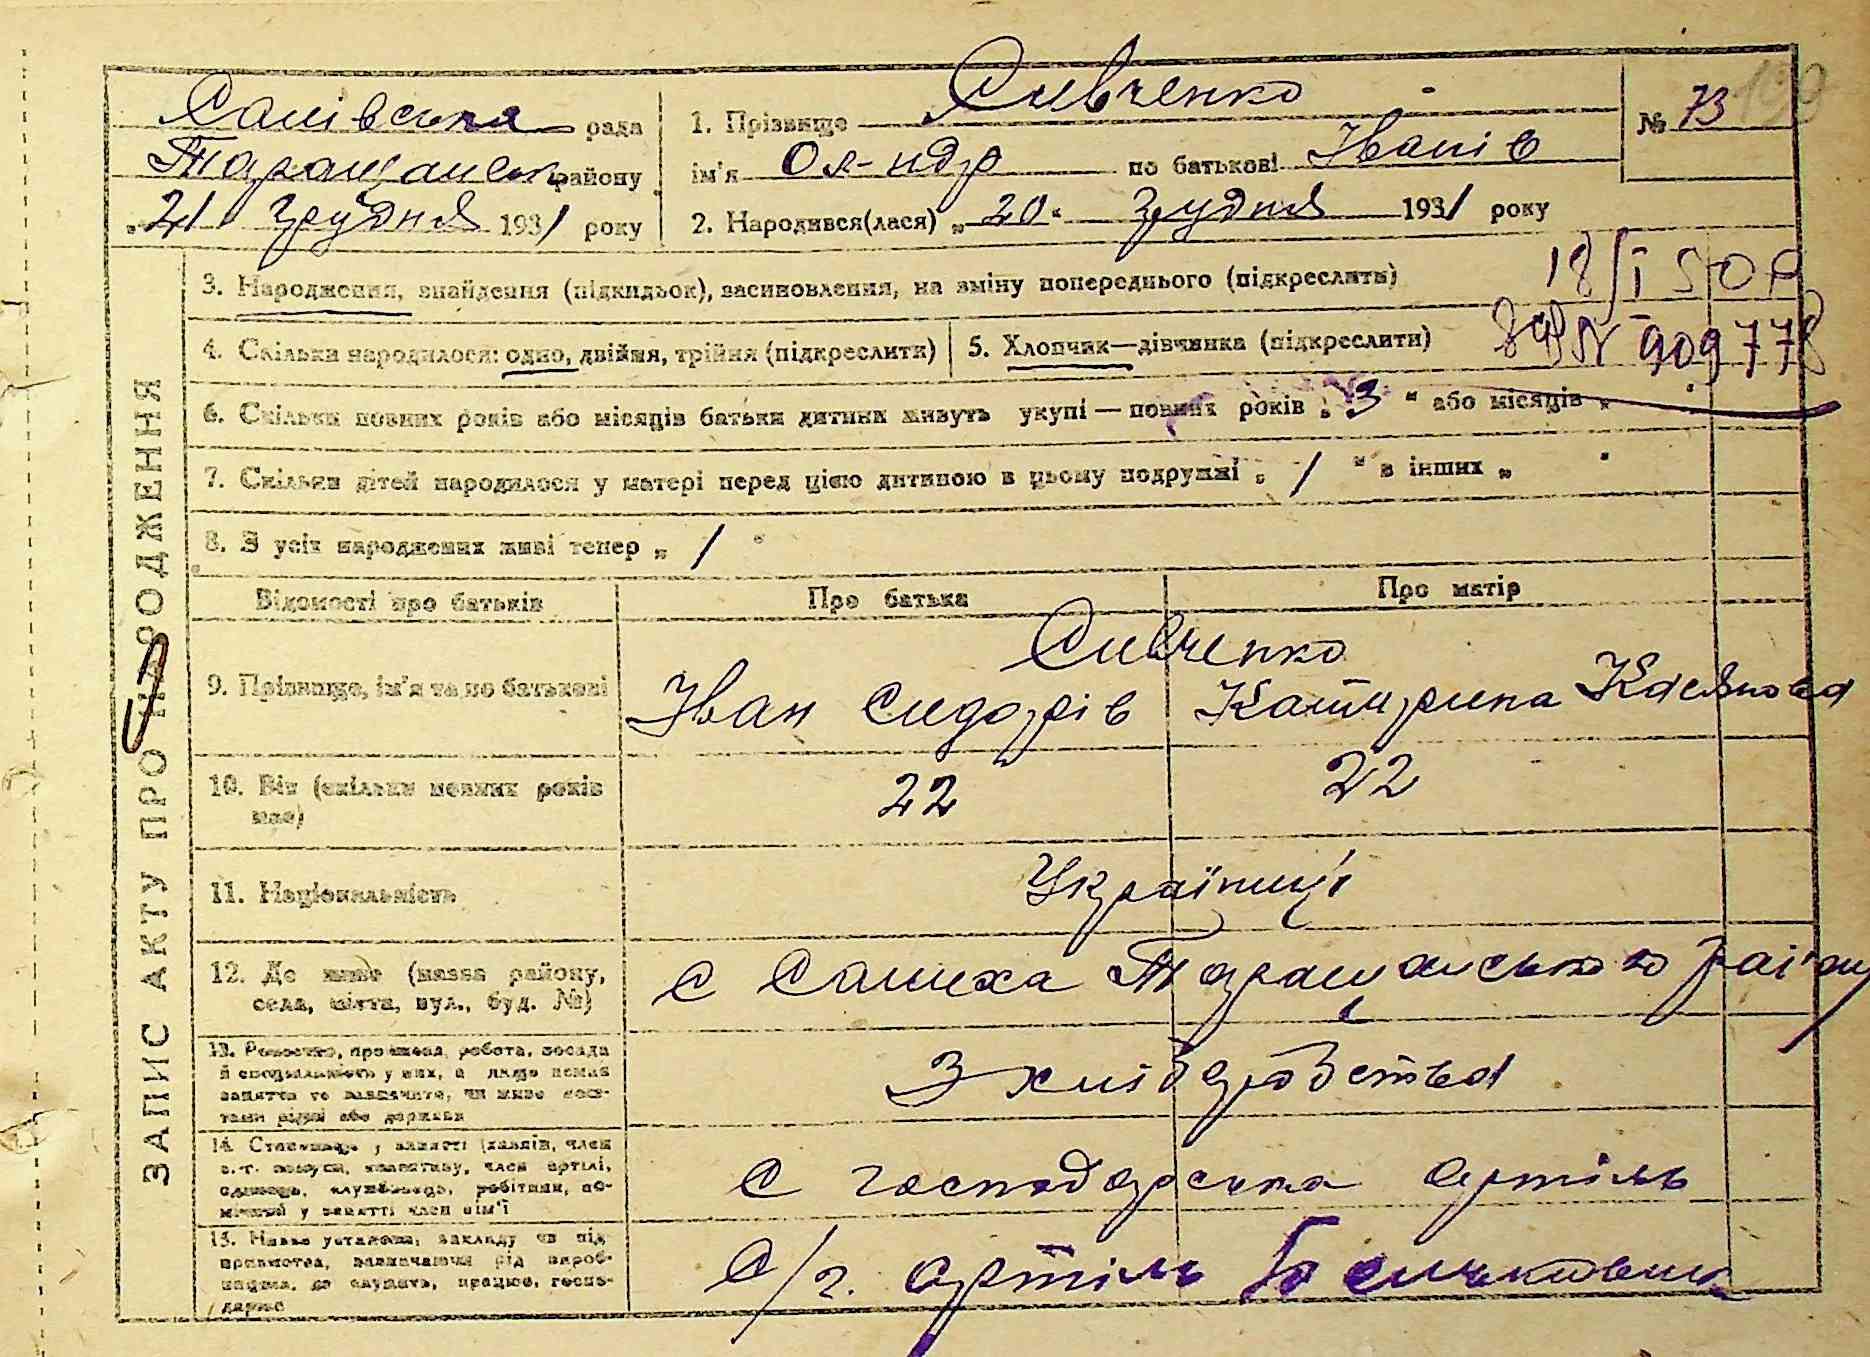 Салівська рада
Таращанськ. району
„21" грудня 1931 року
1. Прізвище Сивченко
ім'я Ол-ндр по батькові Іванів
2. Народився(лася) „20" грудня 1931 року
№ 73
190
ЗАПИС АКТУ ПРО НАРОДЖЕННЯ
3. Народження, знайдення (підкидьок), засиновлення, на зміну попереднього (підкреслить)
18/I 50 р
№ 909778
4. Скільки народилося: одно, двійня, трійня (підкреслити)
5. Хлопчик—дівчинка (підкреслити)
6. Скільки повних років або місяців батьки дитини живуть укупі — повних років „3" або місяців „
7. Скільки дітей народилося у матері перед цією дитиною в цьому подружжі „1" в інших „ "
8. З усіх народжених живі тепер „1"
Відомості про батьків
Про батька
Про матір
9. Прізвище, ім'я та по батькові
Сивченко
Іван Сидорів
Катирина Касянова
10. Вік (скільки повних років має)
22
22
11. Національність
Українці
12. Де живе (назва району, села, міста, вул., буд. №)
с Салиха Таращанського раіону
13. Ремество, промисел, робота, посада й спеціальність у них, а якщо немає заняття то зазначити, чи живе коштами рідні або держави
З хліборобства
14. Становище у занятті (хазяїн, член с.-г. комуни, колективу, член артілі, одинець, службовець, робітник, помічний у занятті член сім'ї
С господарська артіль
15. Назва установи, закладу чи підприємства, зазначаючи рід виробництва, де служить, працює, господарює
С/г. артіль